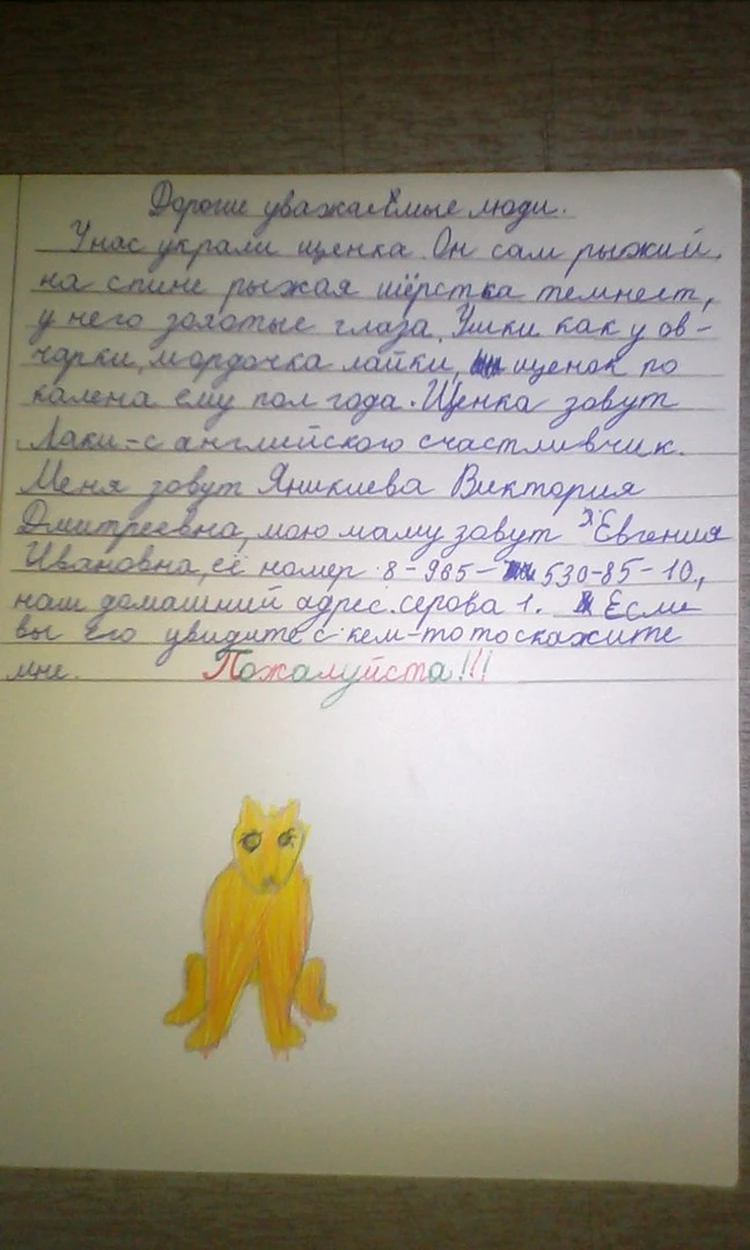 Дорогие уважаемые люди.
У нас украли щенка. Он сам рыжий,
на спине рыжая шёрстка темнеет,
у него золотые глаза. Ушки как у ов-
чарки, мордочка лайки, щенок по
калена ему пол года. Щенка зовут
Лаки-с английского счастливчик.
Меня зовут Яникиева Виктория
Дмитреевна, мою маму зовут Евгения
Ивановна, её номер 8-965-530-85-10.,
наш домашний адрес. серова 1. Если
вы его увидите с кем-то то скажите
мне. Пожалуйста!!!